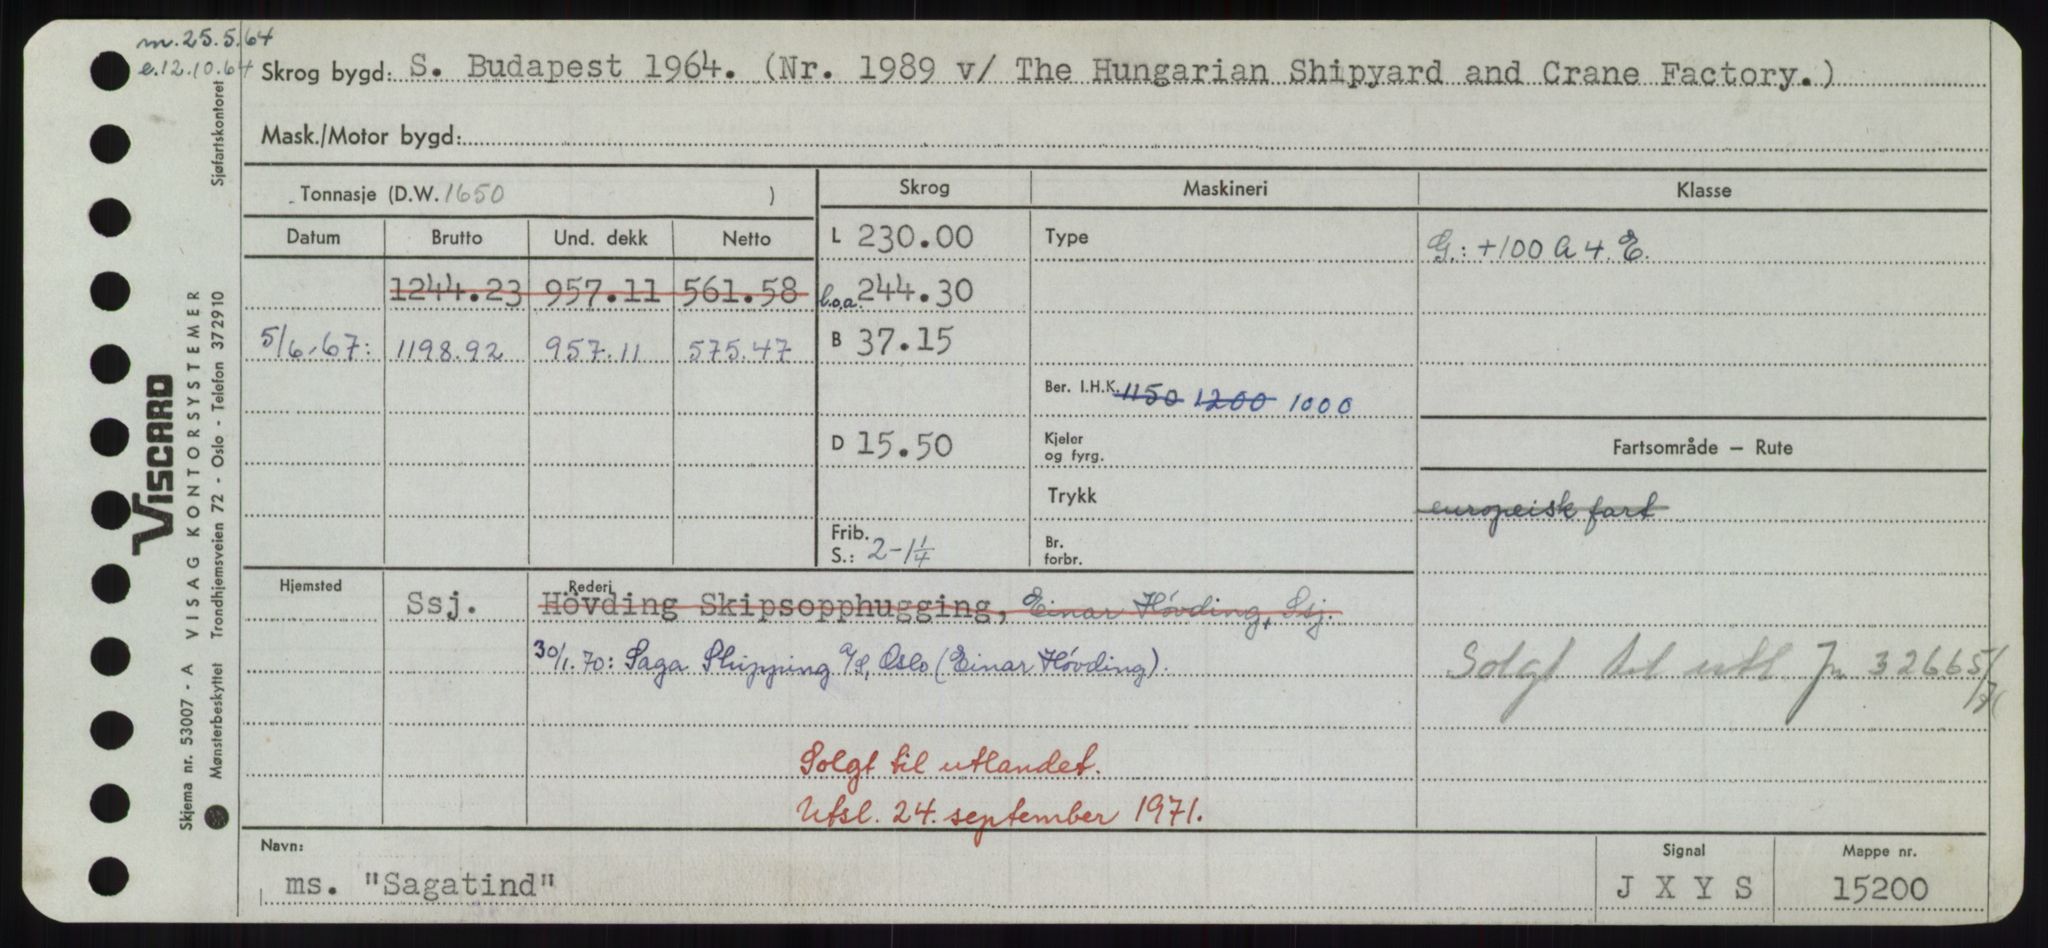 m. 25.5.64
e. 12.10.64
Skrog bygd: S. Budapest 1964. (Nr. 1989 v/ The Hungarian Shipyard and Crane Factory.)
Mask./Motor bygd:
Tonnasje (D.W. 1650 )
Skrog Maskineri Klasse
Datum Brutto Und. dekk Netto
L 230.00 Type G.: +100 A 4. E.
1244.23 957.11 561.58 l.o.a. 244.30
5/6.-67: 1198.92 957.11 575.47 B 37.15
Ber. I.H.K. 1150 1200 1000
D 15.50 Kjeler og fyrg.
Fartsområde — Rute
Trykk
europeisk fart
Frib. S.: 2-1 1/4 Br. forbr.
Hjemsted Ssj. Rederi
Hövding Skipsopphugging, Einar Høvding, Ssj.
30/1.70: Saga Shipping A/S, Oslo (Einar Høvding).
Solgt til utl Jn 32665/71
Solgt til utlandet.
Utsl. 24. september 1971.
Navn: ms. "Sagatind"
Signal J X Y S
Mappe nr. 15200
VISCARD
Skjema nr. 53007 - A VISAG KONTORSYSTEMER
Mønsterbeskyttet Trondhjemsveien 72 - Oslo - Telefon 372910
Sjøfartskontoret